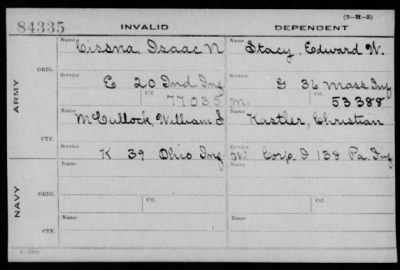 (3-H-3)
84335 INVALID DEPENDENT
Name Cissna, Isaac N Name Stacy, Edward W.
ORIG.
Service Service
E 20 Ind. Inf. G 36 Mass Inf
Ctf. 77035 M. Ctf. 53388
ARMY
Name McCullock, William S Name Kastler, Christian
CTF.
Service Service
K 39 Ohio Inf. W. Corp. I 138 Pa. Inf
NAVY
Name Name
ORIG.
Service Ctf. Service Ctf.
Name Name
CTF.
Service Service